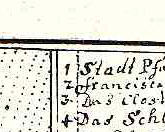 1 Stadt Pfa
2 francisca
3. Das Clost
4 Das Schl